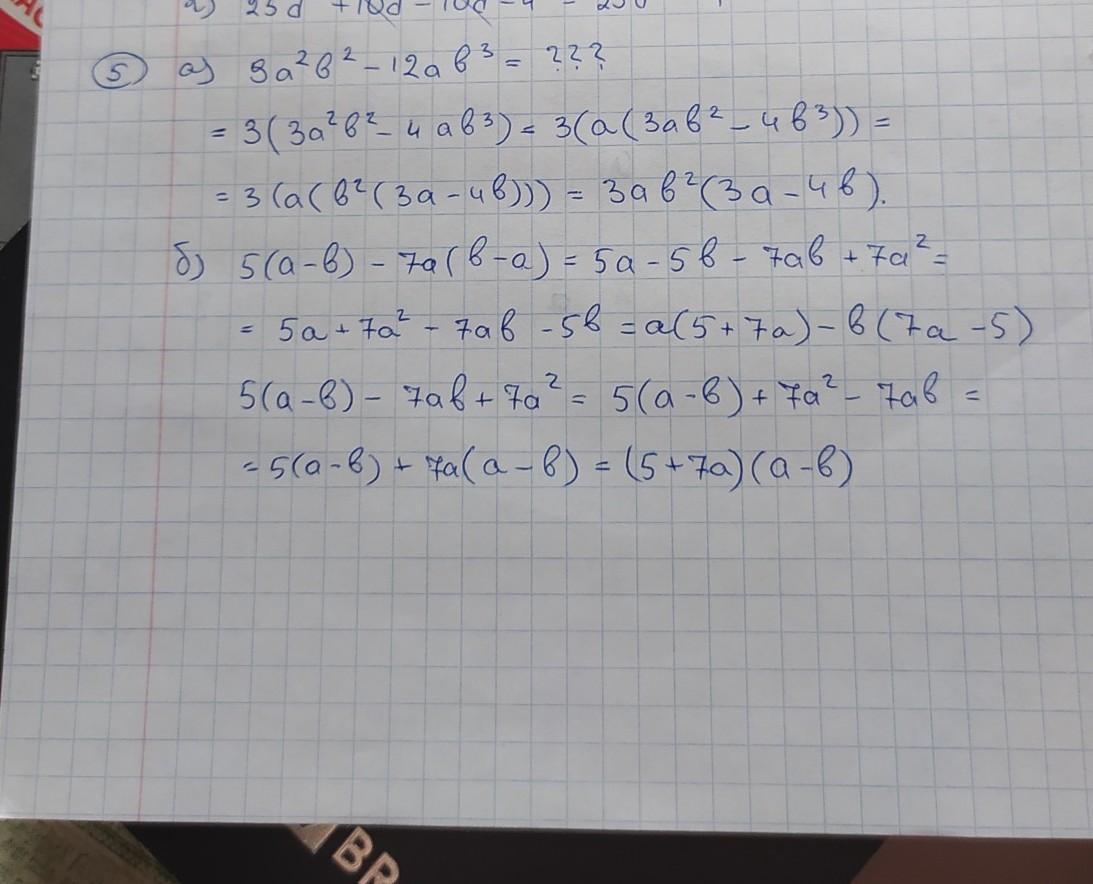 ⑤ а) 9a²b² - 12ab³ = ???
= 3(3a²b² - 4ab³) = 3(a(3ab² - 4b³)) =
= 3(a(b²(3a - 4b))) = 3ab²(3a - 4b).
б) 5(a-b) - 7a(b-a) = 5a - 5b - 7ab + 7a² =
= 5a + 7a² - 7ab - 5b = a(5 + 7a) - b(7a - 5)
5(a-b) - 7ab + 7a² = 5(a-b) + 7a² - 7ab =
= 5(a-b) + 7a(a-b) = (5 + 7a)(a-b)
BR